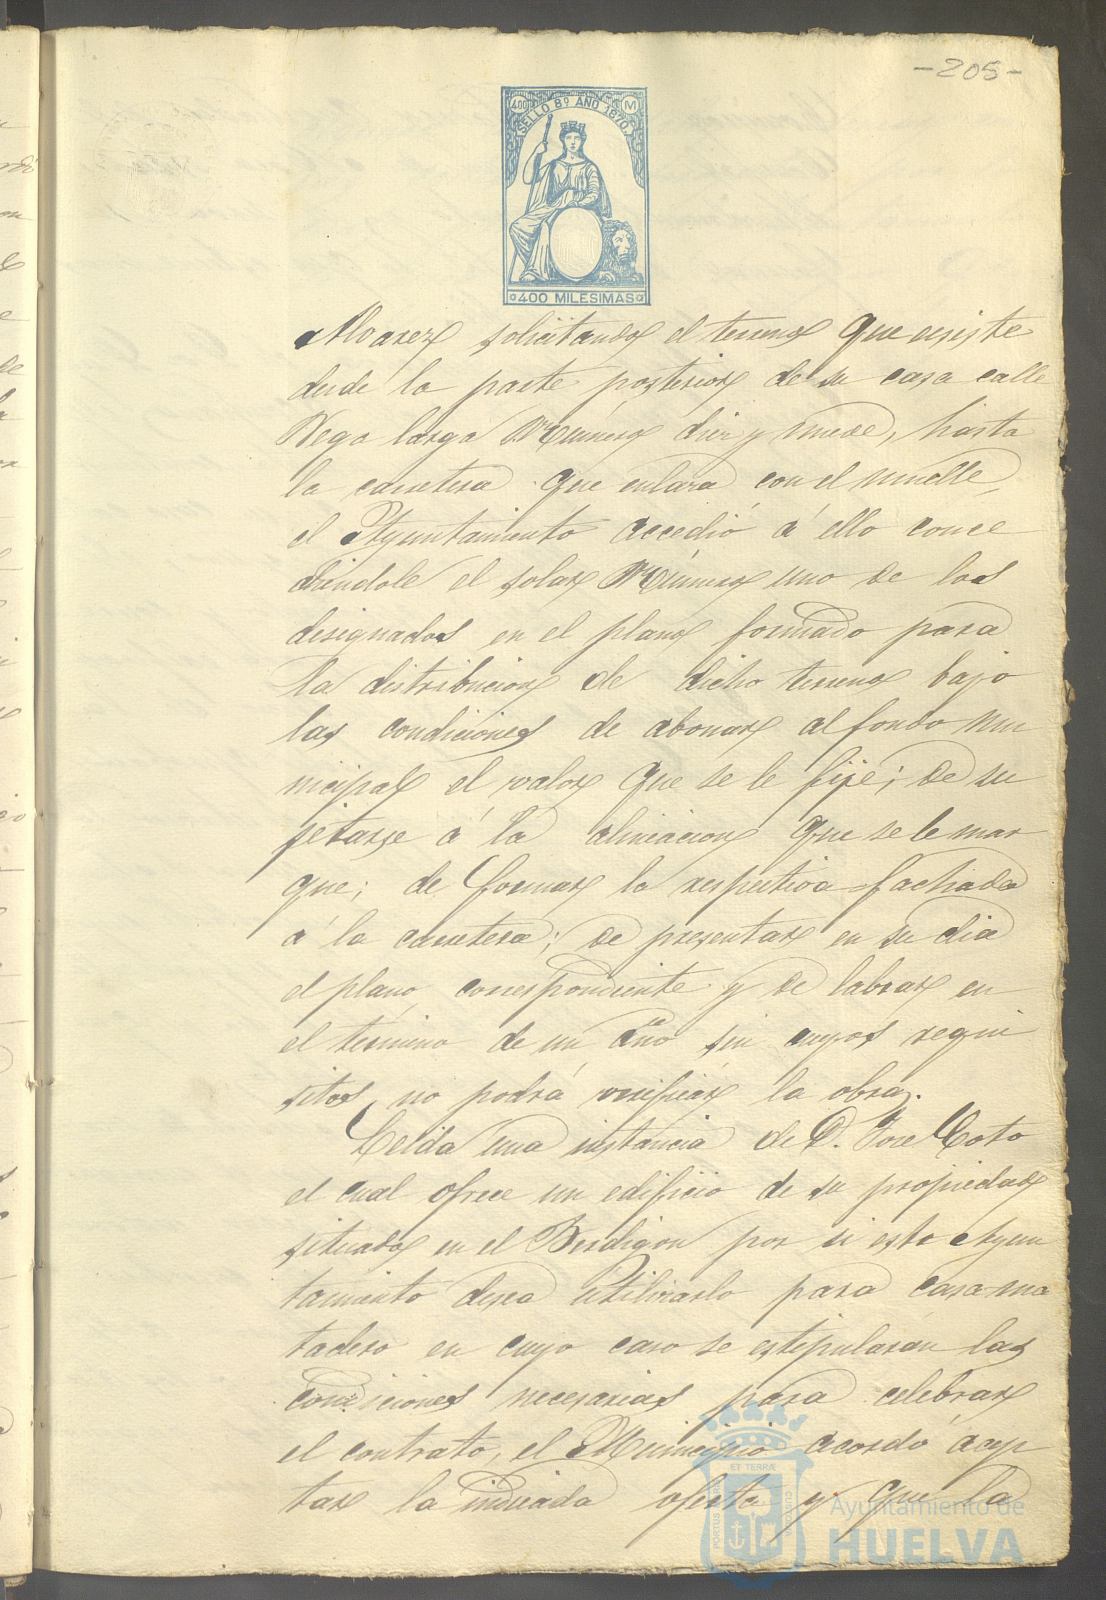 -205-
400 M
SELLO 8º AÑO 1870.
400 MILESIMAS
Alvarez solicitando el terreno que ecsiste
desde la parte posterior de su casa calle
Vega larga Número diez y nueve, hasta
la carretera que enlaza con el muelle,
el Ayuntamiento accedió á ello conce
diendole el solar Número uno de los
designados en el plano formado para
la distribucion de dicho terreno bajo
las condiciones de abonar al fondo mu
nicipal el valor que se le fije; de su
jetarse á la alineacion que se le mar
que; de formar la respectiva fachada
á la carretera; de presentar en su dia
el plano correspondiente y de labrar en
el termino de un año sin cuyos requi
sitos no podrá verificar la obra.
Leida una instancia de D. Jose Coto
el cual ofrece un edificio de su propiedad
situado en el Berdigon por si este Ayun
tamiento desea utilizarlo para casa-ma
tadero en cuyo caso se estipularan las
condiciones necesarias para celebrar
el contrato, el Municipio acordó acep
tar la indicada oferta y que la
ET TERRÆ
PORTUS MARIS
CUSTODIA
Ayuntamiento de
HUELVA